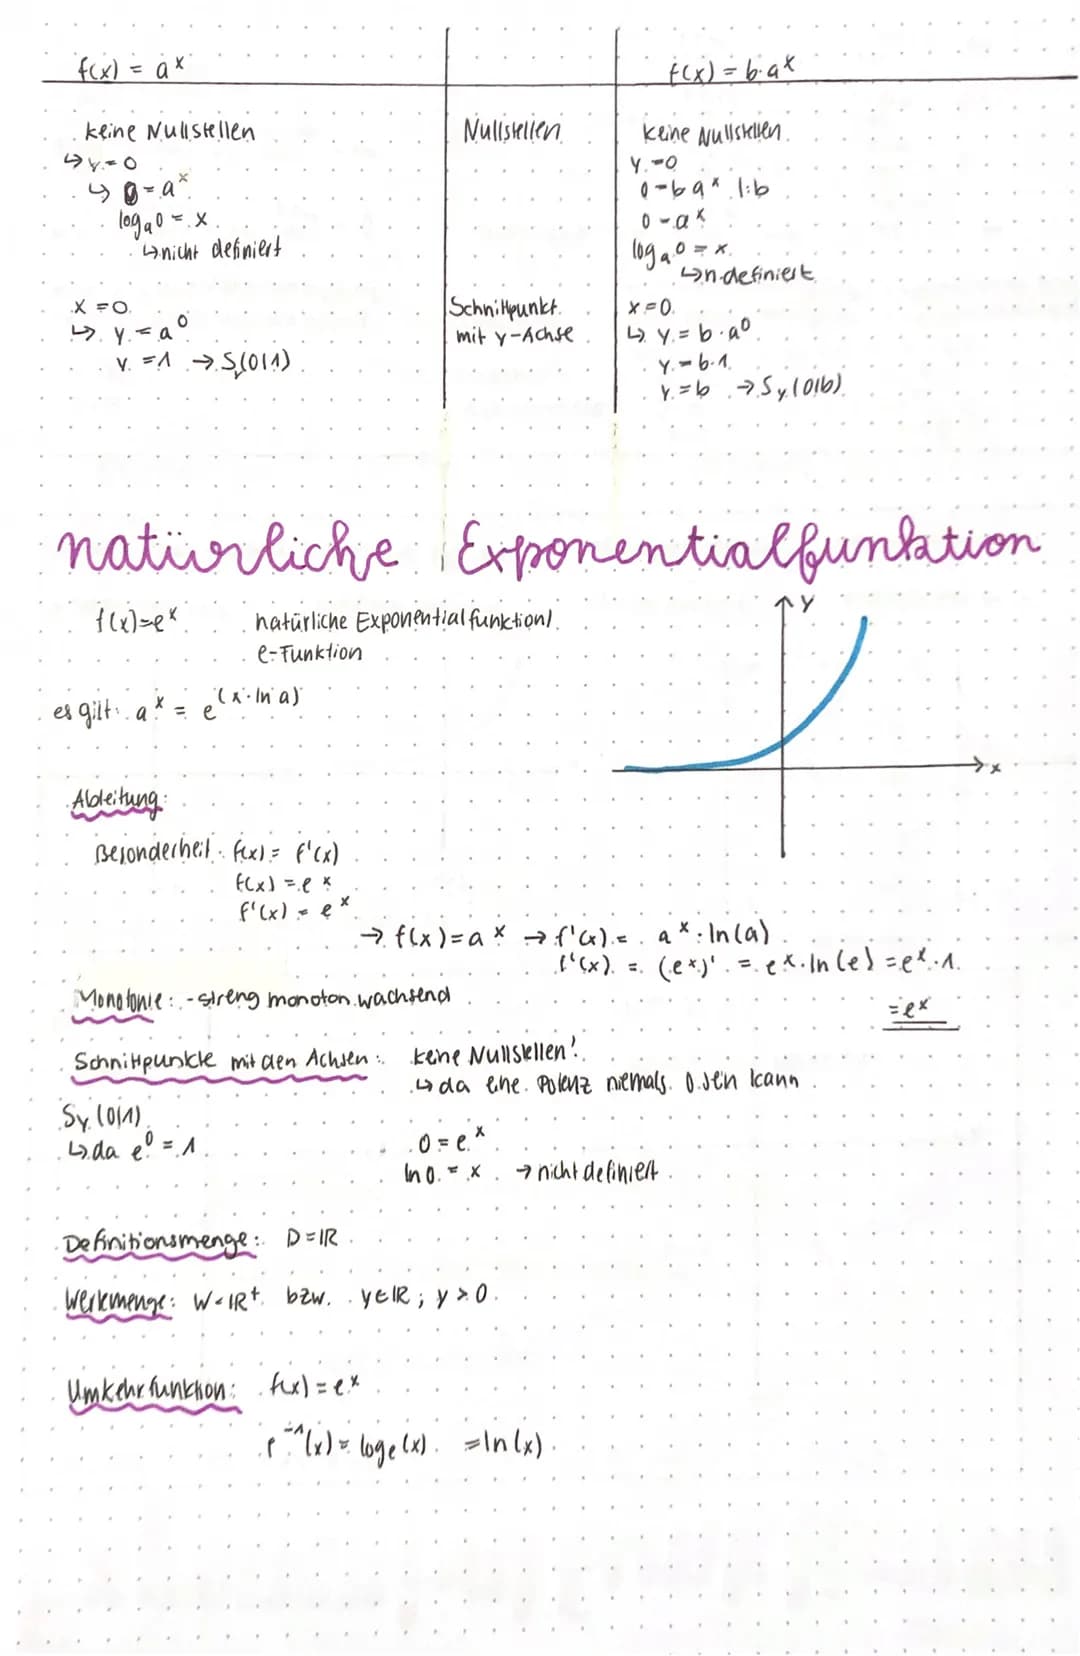 f(x) = aˣ
f(x) = b·aˣ
keine Nullstellen
↳ y = 0
↳ 0 = aˣ
logₐ0 = x
↳ nicht definiert
Nullstellen
keine Nullstellen
y = 0
0 = b aˣ |:b
0 = aˣ
logₐ0 = x
↳ n. definiert
x = 0
↳ y = a⁰
y = 1 → Sᵧ(0|1)
Schnittpunkt
mit y-Achse
x = 0
↳ y = b · a⁰
y = b · 1
y = b → Sy (0|b)
natürliche Exponentialfunktion
f(x) = eˣ natürliche Exponentialfunktion/
e-Funktion
es gilt: aˣ = e^(x·ln a)
y
x
Ableitung:
Besonderheit: f(x) = f'(x)
f(x) = eˣ
f'(x) = eˣ
→ f(x) = aˣ → f'(x) = aˣ · ln(a)
f'(x) = (eˣ)' = eˣ · ln(e) = eˣ · 1
= eˣ
Monotonie: - streng monoton wachsend
Schnittpunkte mit den Achsen: keine Nullstellen!
↳ da eine Potenz niemals 0 sein kann
Sy (0|1)
↳ da e⁰ = 1
0 = eˣ
ln 0 = x → nicht definiert
Definitionsmenge: D = ℝ
Wertemenge: W = ℝ⁺ bzw. y ∈ ℝ ; y > 0
Umkehrfunktion: f(x) = eˣ
f⁻¹(x) = logₑ(x) = ln(x)